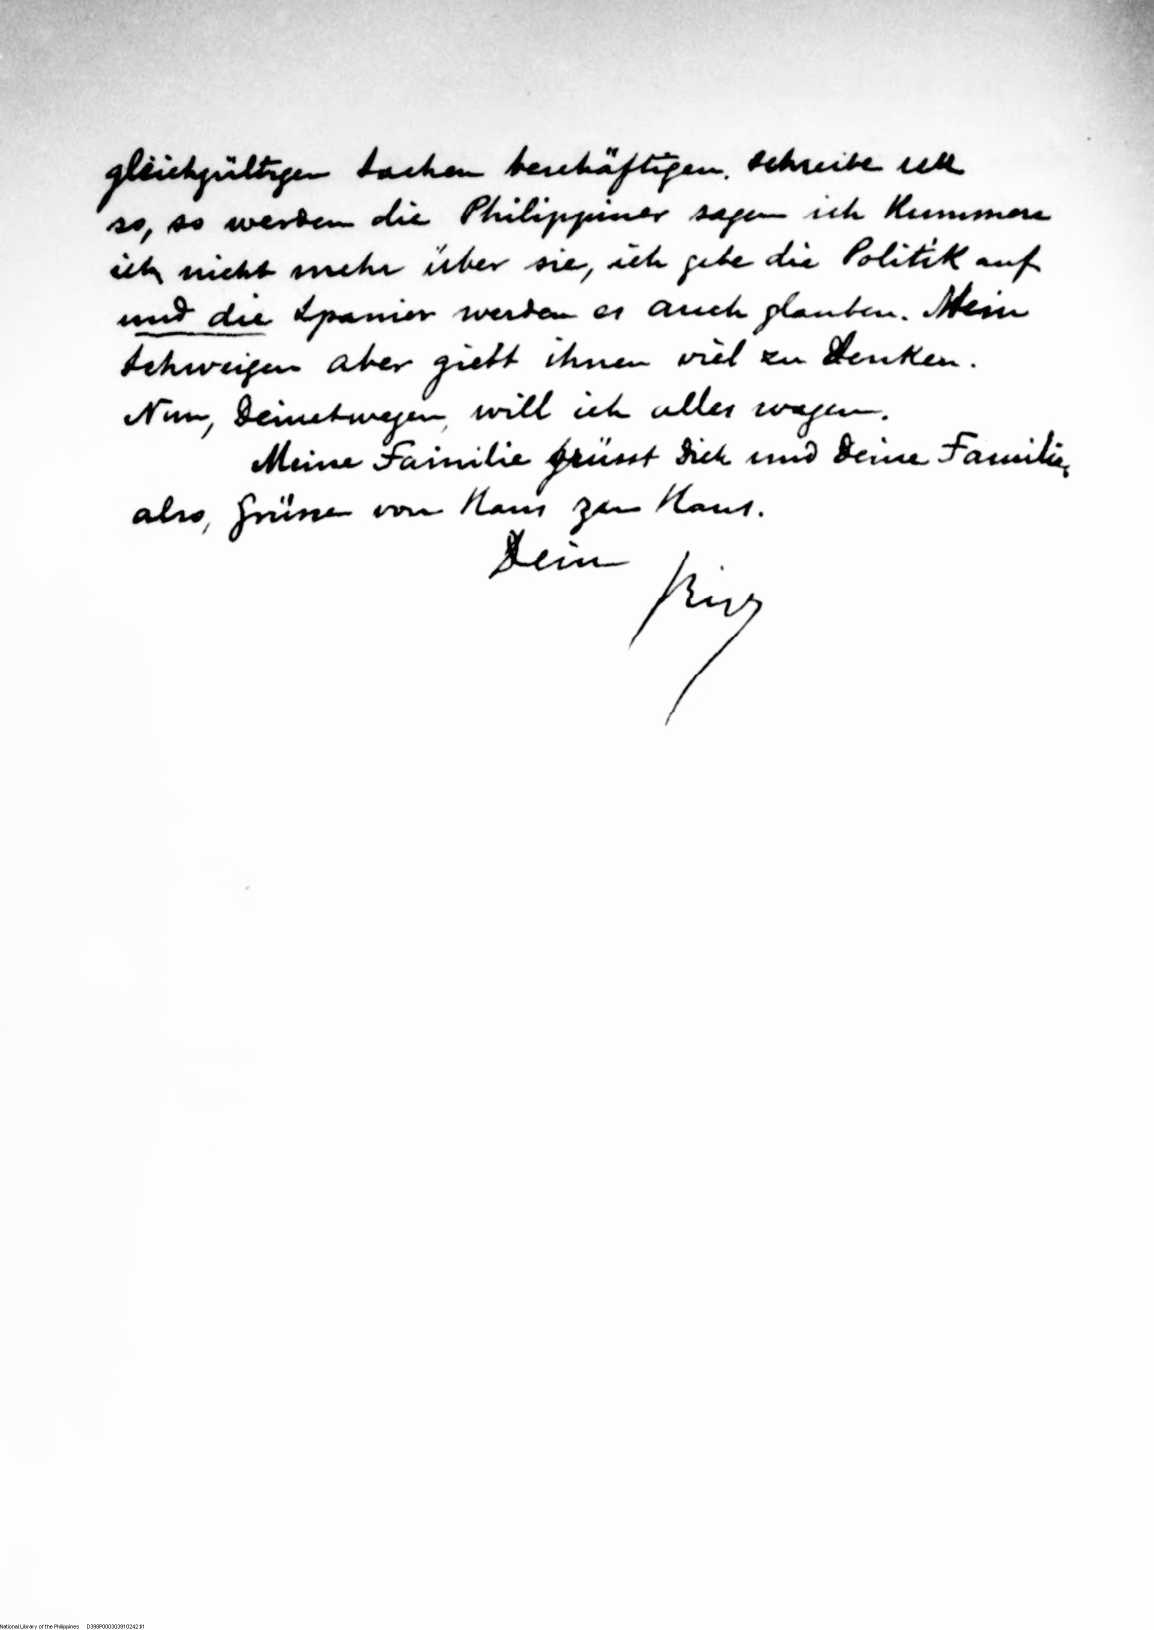 gleichgültigen Sachen beschäftigen. Schreibe ich
so, so werden die Philippiner sagen ich Kummere
ich nicht mehr über sie, ich gebe die Politik auf
und die Spanier werden es auch glauben. Mein
Schweigen aber giebt ihnen viel zu Denken.
Nun, Deinetwegen, will ich alles wagen.
Meine Familie grüsst Dich und Deine Familie,
also, Grüsse von Haus zu Haus.
Dein
Rizal
National Library of the Philippines